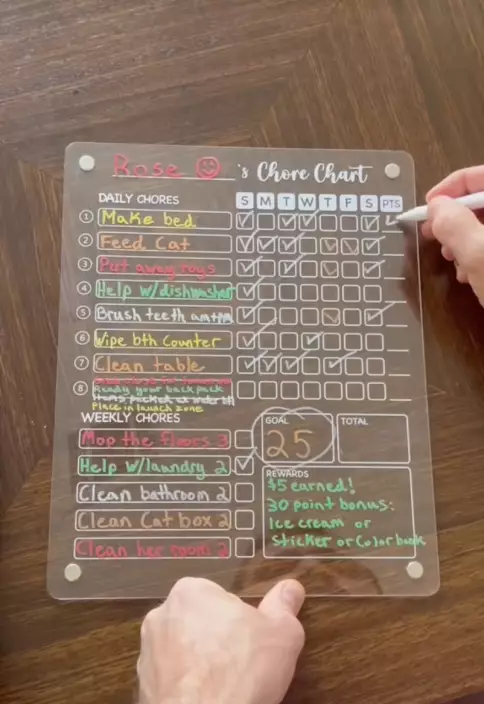 Rose 's Chore Chart
DAILY CHORES S M T W T F S PTS
1 Make bed
2 Feed Cat
3 Put away toys
4 Help w/dishwasher
5 Brush teeth
6 Wipe bth Counter
7 Clean table
8 Ready your backpack
Place in launch zone
WEEKLY CHORES
Mop the floors 3
Help w/laundry 2
Clean bathroom 2
Clean Cat box 2
Clean her room 2
GOAL
25
TOTAL
REWARDS
$5 earned!
30 point bonus:
Ice cream or
sticker or Color book